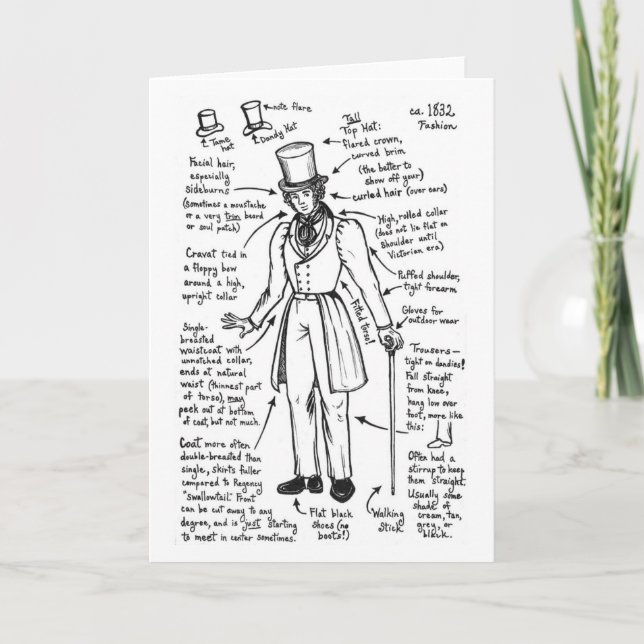 note flare
Tame hat
Dandy Hat
Tall
Top Hat:
flared crown,
curved brim
(the better to
show off your
curled hair (over ears)
ca. 1832
Fashion
Facial hair,
especially
sideburns
(sometimes a moustache
or a very trim beard
or soul patch)
High, rolled collar
(does not lie flat on
shoulder until
Victorian era)
Cravat tied in
a floppy bow
around a high,
upright collar
Puffed shoulder,
tight forearm
Fitted torso!
Gloves for
outdoor wear
Single-
breasted
waistcoat with
unnotched collar,
ends at natural
waist (thinnest part
of torso), may
peek out at bottom
of coat, but not much.
Trousers—
tight on dandies!
Fall straight
from knee,
hang low over
foot, more like
this:
Coat more often
double-breasted than
single, skirts fuller
compared to Regency
"swallowtail." Front
can be cut away to any
degree, and is just starting
to meet in center sometimes.
Often had a
stirrup to keep
them straight.
Usually some
shade of
cream, tan,
grey, or
black.
Flat black
shoes (no
boots!)
Walking
Stick